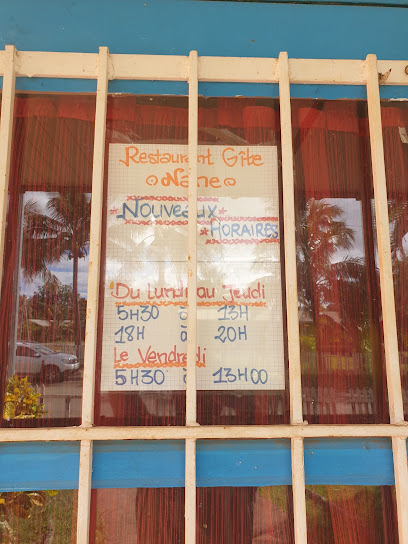 Restaurant Gîte
Naïne
Nouveaux
Horaires
Du Lundi au Jeudi
5H30 à 13H
18H à 20H
Le Vendredi
5H30 à 13H00